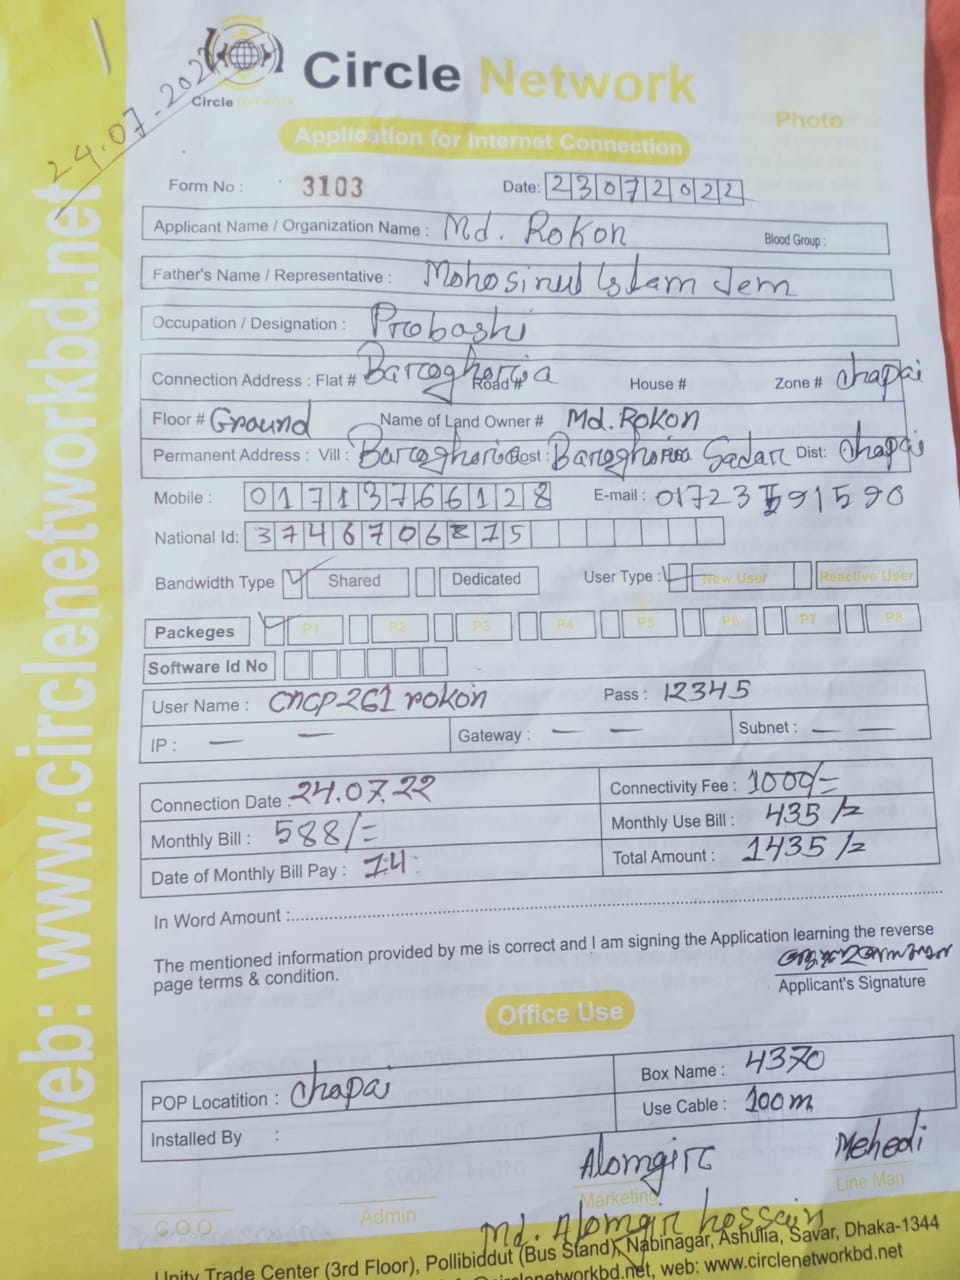 24.07.202
Circle Network
Circle Network
Application for Internet Connection
Photo
Form No : 3103 Date: 23072022
Applicant Name / Organization Name : Md. Rokon Blood Group :
Father's Name / Representative : Mohosinul Islam Jem
Occupation / Designation : Probashi
Connection Address : Flat # Baroghoria Road # House # Zone # Chapai
Floor # Ground Name of Land Owner # Md. Rokon
Permanent Address : Vill : Baroghoria Post : Baroghoria Sadar Dist: Chapai
Mobile : 01713766128 E-mail : 01723591590
National Id: 3746706875
Bandwidth Type Shared Dedicated User Type : New User Reactive User
Packeges P1 P2 P3 P4 P5 P6 P7 P8
Software Id No
User Name : CNCP261 rokon Pass : 12345
IP : — — Gateway : — — Subnet : — —
Connection Date : 24.07.22 Connectivity Fee : 1000/=
Monthly Bill : 588/= Monthly Use Bill : 435/=
Date of Monthly Bill Pay : 14 Total Amount : 1435/=
In Word Amount :
The mentioned information provided by me is correct and I am signing the Application learning the reverse
page terms & condition.
Applicant's Signature
Office Use
POP Locatition : Chapai Box Name : 4370
Installed By : Use Cable : 100m
Alomgir Mehedi
C.O.O Admin Marketing Line Man
Md. Alomgir hossain
Unity Trade Center (3rd Floor), Pollibiddut (Bus Stand), Nabinagar, Ashulia, Savar, Dhaka-1344
@circlenetworkbd.net, web: www.circlenetworkbd.net
web: www.circlenetworkbd.net